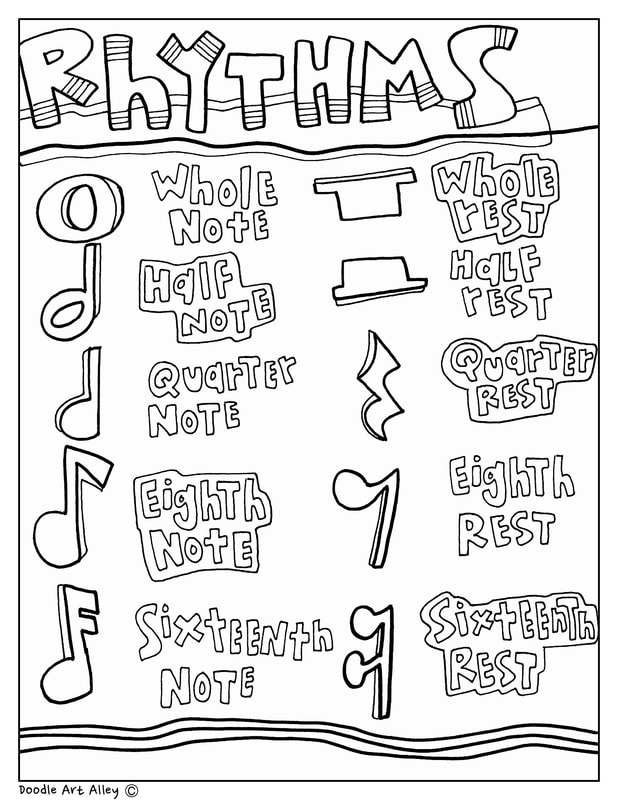 RhYTHMS
WholE
NotE
WholE
rEST
HalF
NotE
HaLF
rEST
QuarTEr
NotE
QuarTEr
REST
EighTh
NotE
EighTh
REST
SixtEENth
NotE
SixtEENth
REST
Doodle Art Alley ©